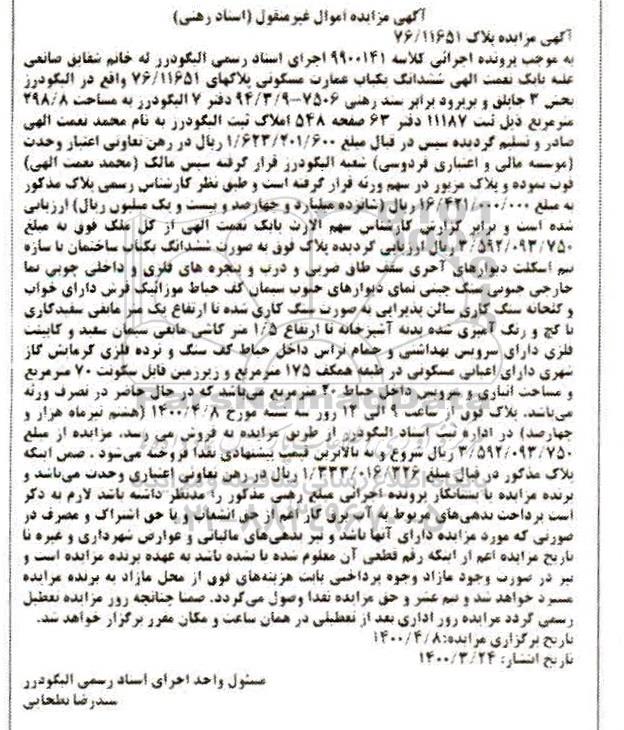 آگهی مزایده اموال غیرمنقول (اسناد رهنی)
آگهی مزایده پلاک ۷۶/۱۱۶۵۱
به موجب پرونده اجرائی کلاسه ۹۹۰۰۱۴۱ اجرای اسناد رسمی الیگودرز له خانم شقایق صانعی
علیه بابک نعمت الهی ششدانگ یکباب عمارت مسکونی پلاکهای ۷۶/۱۱۶۵۱ واقع در الیگودرز
بخش ۳ جاپلق و بربرود برابر سند رهنی ۷۵۰۶-۹۴/۳/۹ دفتر ۷ الیگودرز به مساحت ۲۹۸/۸
مترمربع ذیل ثبت ۱۱۱۸۷ دفتر ۶۳ صفحه ۵۴۸ املاک ثبت الیگودرز به نام محمد نعمت الهی
صادر و تسلیم گردیده سپس در قبال مبلغ ۱/۶۲۳/۲۰۱/۶۰۰ ریال در رهن تعاونی اعتبار وحدت
(موسسه مالی و اعتباری فردوسی) شعبه الیگودرز قرار گرفته سپس مالک (محمد نعمت الهی)
فوت نموده و پلاک مزبور در سهم ورثه قرار گرفته است و طبق نظر کارشناس رسمی پلاک مذکور
به مبلغ ۱۶/۴۲۱/۰۰۰/۰۰۰ ریال (شانزده میلیارد و چهارصد و بیست و یک میلیون ریال) ارزیابی
شده است و برابر گزارش کارشناس سهم الارث بابک نعمت الهی از کل ملک فوق به مبلغ
۳/۵۹۲/۰۹۳/۷۵۰ ریال ارزیابی گردیده پلاک فوق به صورت ششدانگ یکباب ساختمان با سازه
نیم اسکلت دیوارهای آجری سقف طاق ضربی و درب و پنجره های فلزی و داخلی چوبی نما
خارجی جنوبی سنگ چینی نمای دیوارهای جنوب سیمان کف حیاط موزائیک فرش دارای خواب
و گنجانه سنگ کاری سالن پذیرایی به صورت سنگ کاری شده تا ارتفاع یک متر مابقی سفیدکاری
با گچ و رنگ آمیزی شده بدنه آشپزخانه تا ارتفاع ۱/۵ متر کاشی مابقی سیمان سفید و کابینت
فلزی دارای سرویس بهداشتی و حمام تراس داخل حیاط کف سنگ و نرده فلزی گرمایش گاز
شهری دارای اعیانی مسکونی در طبقه همکف ۱۷۵ مترمربع و زیرزمین قابل سکونت ۷۰ مترمربع
و مساحت انباری و سرویس داخل حیاط ۲۰ مترمربع می‌باشد که در حال حاضر در تصرف ورثه
می‌باشد. پلاک فوق از ساعت ۹ الی ۱۲ روز سه شنبه مورخ ۱۴۰۰/۴/۸ (هشتم تیرماه هزار و
چهارصد) در اداره ثبت اسناد الیگودرز از طریق مزایده به فروش می رسد. مزایده از مبلغ
۳/۵۹۲/۰۹۳/۷۵۰ ریال شروع و به بالاترین قیمت پیشنهادی نقدا فروخته می‌شود . ضمن اینکه
پلاک مذکور در قبال مبلغ ۱/۳۳۳/۰۱۶/۲۲۶ ریال در رهن تعاونی اعتباری وحدت می‌باشد و
برنده مزایده یا بستانکار پرونده اجرائی مبلغ رهنی مذکور را مدنظر داشته باشد لازم به ذکر
است پرداخت بدهی‌های مربوط به آب، برق گاز اعم از حق انشعاب و یا حق اشتراک و مصرف در
صورتی که مورد مزایده دارای آنها باشد و نیز بدهی‌های مالیاتی و عوارض شهرداری و غیره تا
تاریخ مزایده اعم از اینکه رقم قطعی آن معلوم شده یا نشده باشد به عهده برنده مزایده است و
نیز در صورت وجود مازاد وجوه پرداختی بابت هزینه‌های فوق از محل مازاد به برنده مزایده
مسترد خواهد شد و نیم عشر و حق مزایده نقدا وصول می‌گردد. ضمنا چنانچه روز مزایده تعطیل
رسمی گردد مزایده روز اداری بعد از تعطیلی در همان ساعت و مکان مقرر برگزار خواهد شد.
تاریخ برگزاری مزایده: ۱۴۰۰/۴/۸
تاریخ انتشار: ۱۴۰۰/۳/۲۴
مسئول واحد اجرای اسناد رسمی الیگودرز
سیدرضا بطحایی